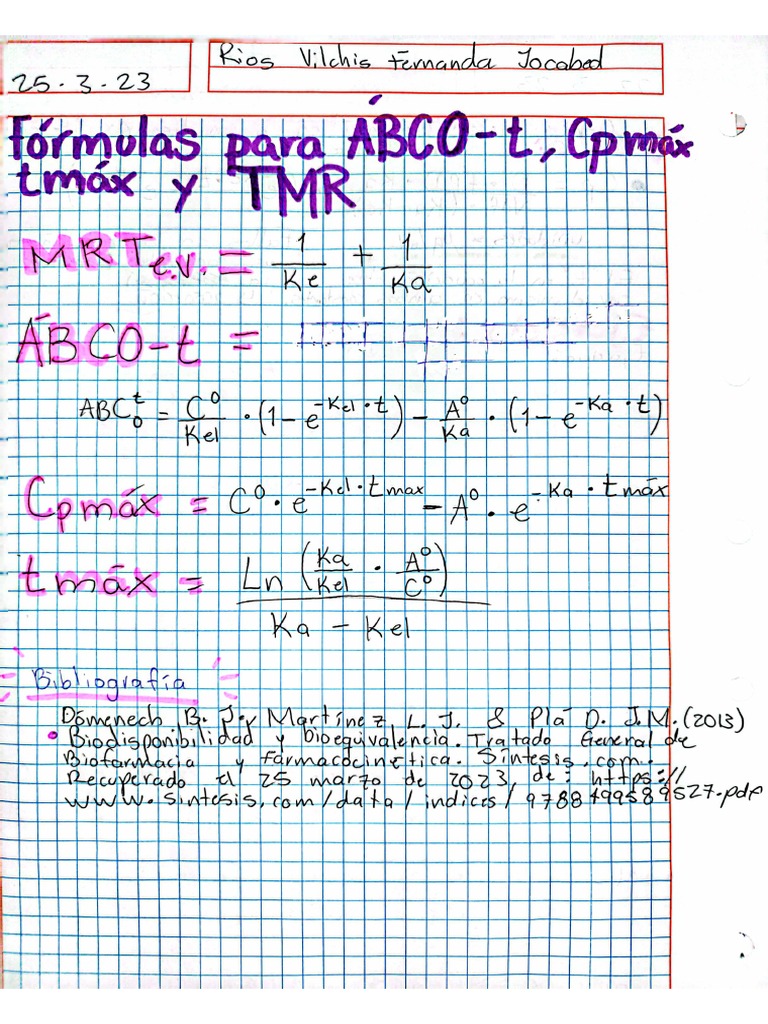 Rios Vilchis Fernanda Jocabed
25-3-23
Fórmulas para ÁBCO-t, Cpmáx
tmáx y TMR
MRTe.v. = 1/Ke + 1/Ka
ÁBCO-t =
ABC₀ᵗ = C⁰/Kel · (1 - e^(-Kel · t)) - A⁰/Ka · (1 - e^(-Ka · t))
Cpmáx = C⁰ · e^(-Kel · tmax) - A⁰ · e^(-Ka · tmáx)
tmáx = Ln (Ka/Kel · A⁰/C⁰) / Ka - Kel
Bibliografía
Doménech B. J. y Martínez L. J. & Plá D. J.M. (2013)
• Biodisponibilidad y bioequivalencia. Tratado General de
Biofarmacia y farmacocinetica. Síntesis.com.
Recuperado el 25 marzo de 2023, de: https://
www.sintesis.com/data/indices/9788499589527.pdf